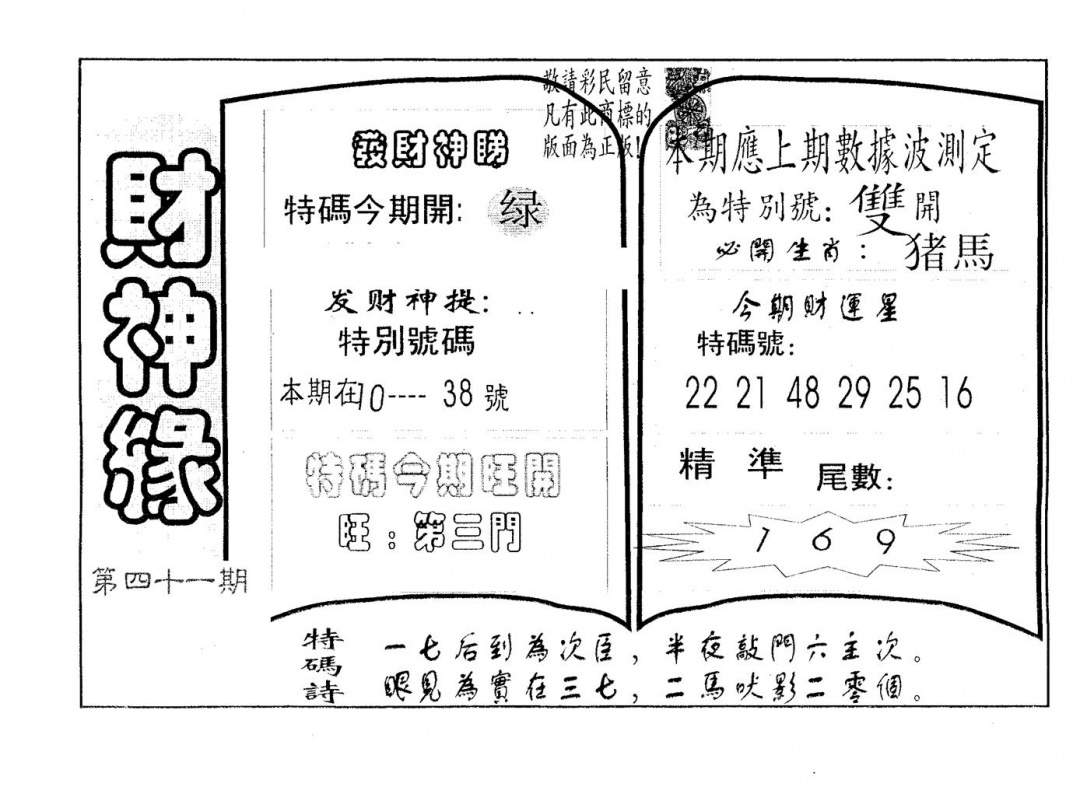 財神緣
第四十一期
敬請彩民留意
凡有此商標的
版面為正版!
發財神睇
特碼今期開: 绿
发财神提:
特別號碼
本期在10---- 38 號
特碼今期旺開
旺:第三門
本期應上期數據波測定
為特別號: 雙開
必開生肖: 猪馬
今期財運星
特碼號:
22 21 48 29 25 16
精準 尾數:
1 6 9
特碼詩
一七后到為次臣,半夜敲門六主次。
眼見為實在三七,二馬吠影二零個。